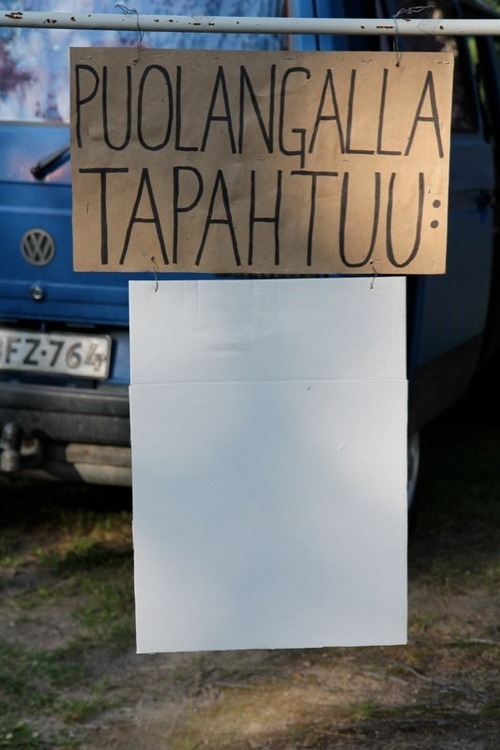 PUOLANGALLA
TAPAHTUU:
FZ-76